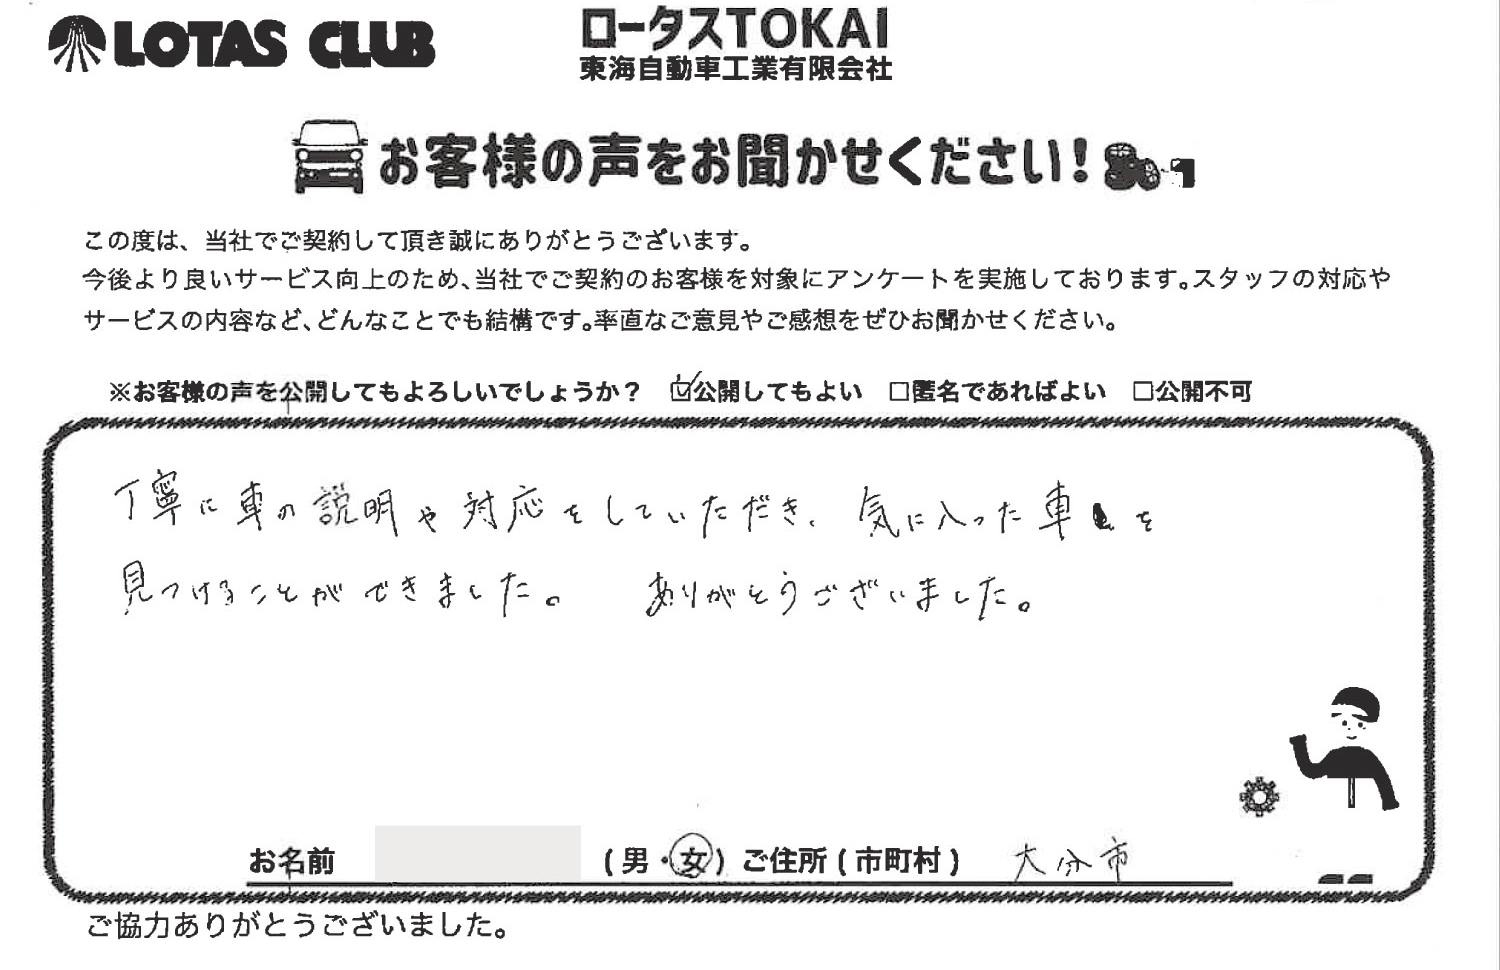 LOTAS CLUB
ロータスTOKAI
東海自動車工業有限会社
お客様の声をお聞かせください!
この度は、当社でご契約して頂き誠にありがとうございます。
今後より良いサービス向上のため、当社でご契約のお客様を対象にアンケートを実施しております。スタッフの対応や
サービスの内容など、どんなことでも結構です。率直なご意見やご感想をぜひお聞かせください。
※お客様の声を公開してもよろしいでしょうか? ☑公開してもよい □匿名であればよい □公開不可
丁寧に車の説明や対応をしていただき、気に入った車を
見つけることができました。 ありがとうございました。
お名前 (男・女) ご住所(市町村) 大分市
ご協力ありがとうございました。